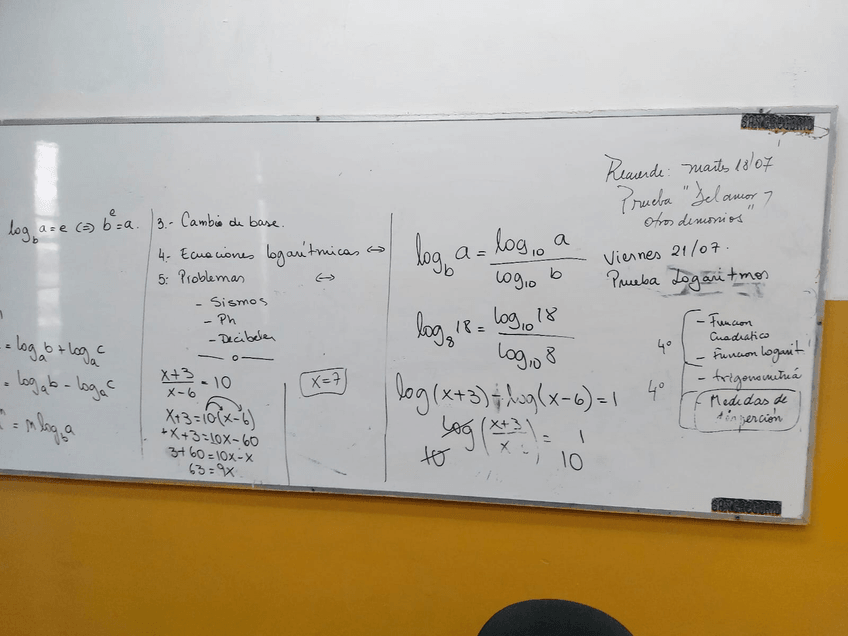 log_b a = e <=> b^e = a.
= log_a b + log_a c
= log_a b - log_a c
= m log_b a
3.- Cambio de base.
4- Ecuaciones logarítmicas <->
5: Problemas <->
- Sismos
- Ph
- Decibeles
— o —
x+3/x-6 = 10
x+3=10(x-6)
x+3=10x-60
3+60=10x-x
63=9x
x=7
log_b a = log_10 a / log_10 b
log_8 18 = log_10 18 / log_10 8
log(x+3) - log(x-6) = 1
log(x+3/x) = 1
10 10
Recuerde: martes 18/07
Prueba "Del amor y
otros demonios"
Viernes 21/07.
Prueba Logaritmos
4° - Funcion
Cuadratico
- Funcion logarit
4° - trigonometria
- Medidas de